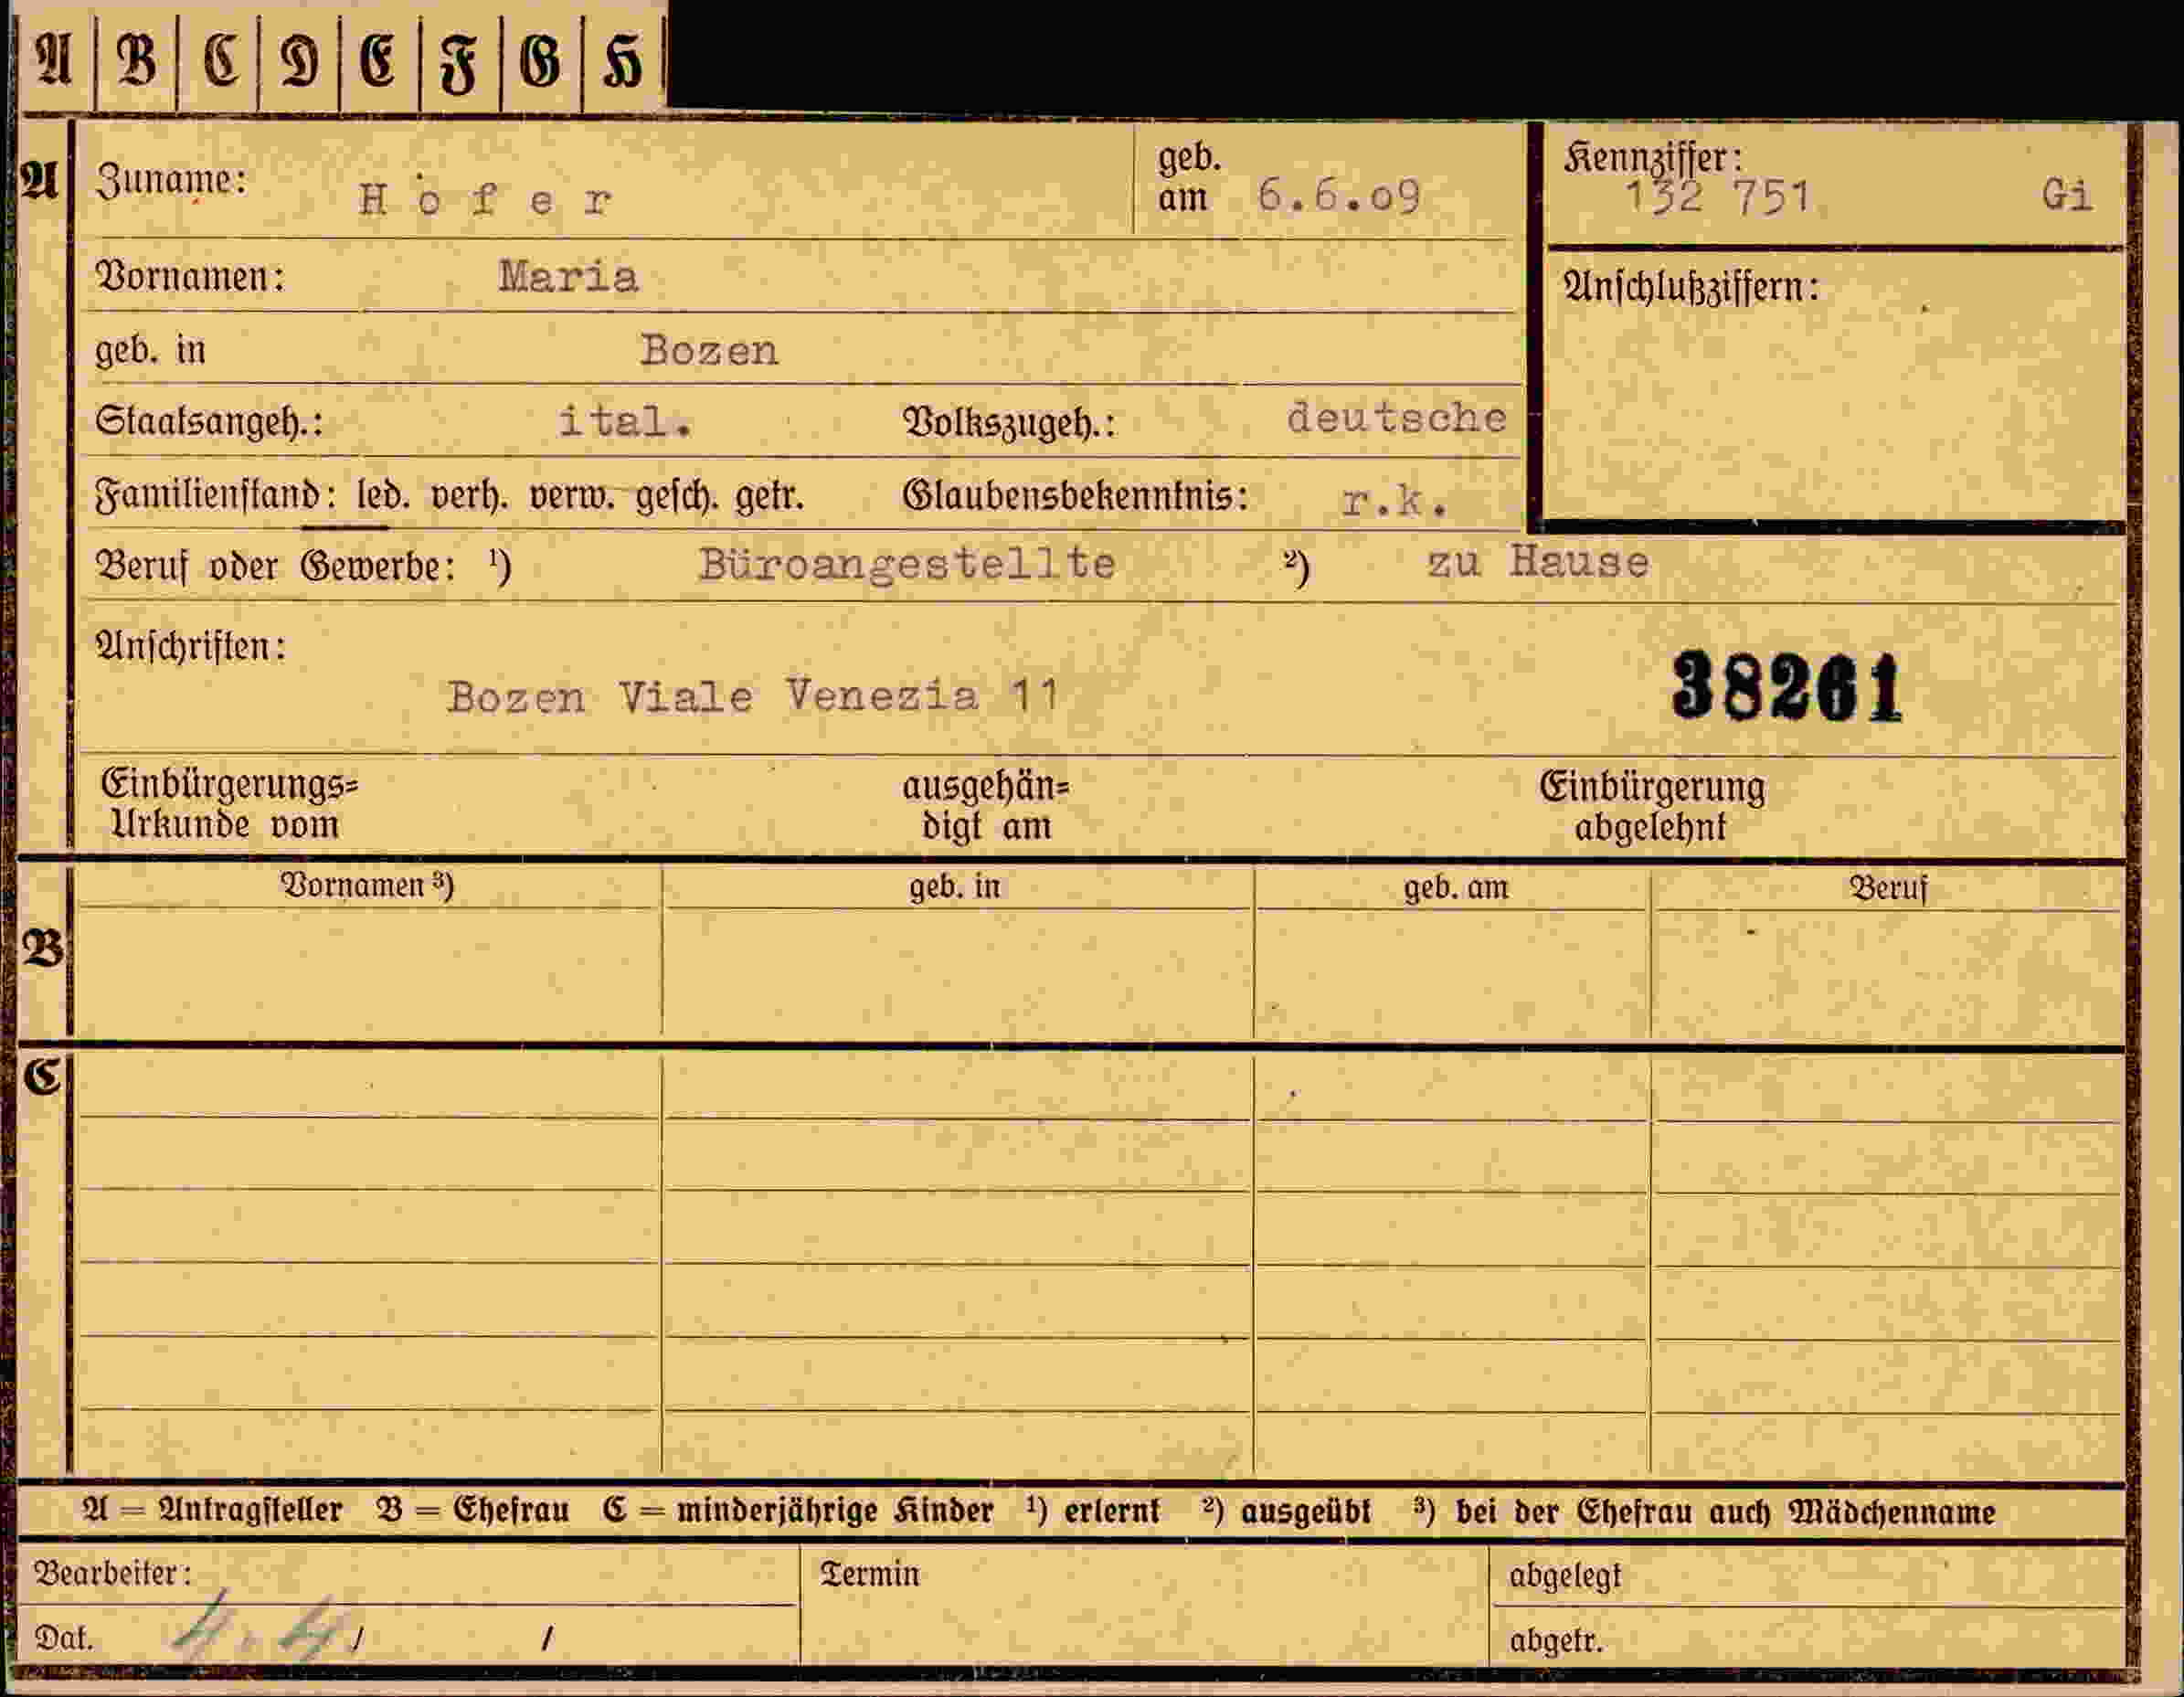 A B C D E F G H
A Zuname: Hofer geb. am 6.6.09 Kennziffer: 132 751 Gi
Vornamen: Maria Anschlußziffern:
geb. in Bozen
Staatsangeh.: ital. Volkszugeh.: deutsche
Familienstand: led. verh. verw. gesch. getr. Glaubensbekenntnis: r.k.
Beruf oder Gewerbe: ¹) Büroangestellte ²) zu Hause
Anschriften:
Bozen Viale Venezia 11 38261
Einbürgerungs= ausgehän= Einbürgerung
Urkunde vom digt am abgelehnt
Vornamen ³) geb. in geb. am Beruf
B
C
A = Antragsteller B = Ehefrau C = minderjährige Kinder ¹) erlernt ²) ausgeübt ³) bei der Ehefrau auch Mädchenname
Bearbeiter: Termin abgelegt
Dat. 4. 4. / / abgetr.